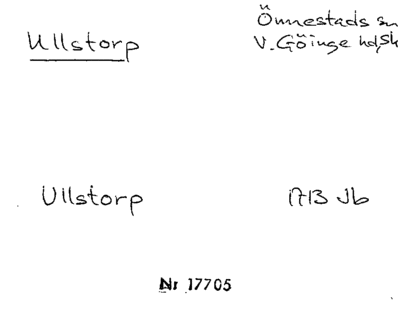 Önnestads sn
Ullstorp V. Göinge hd, Sk
Ullstorp 1713 Jb
Nr 17705